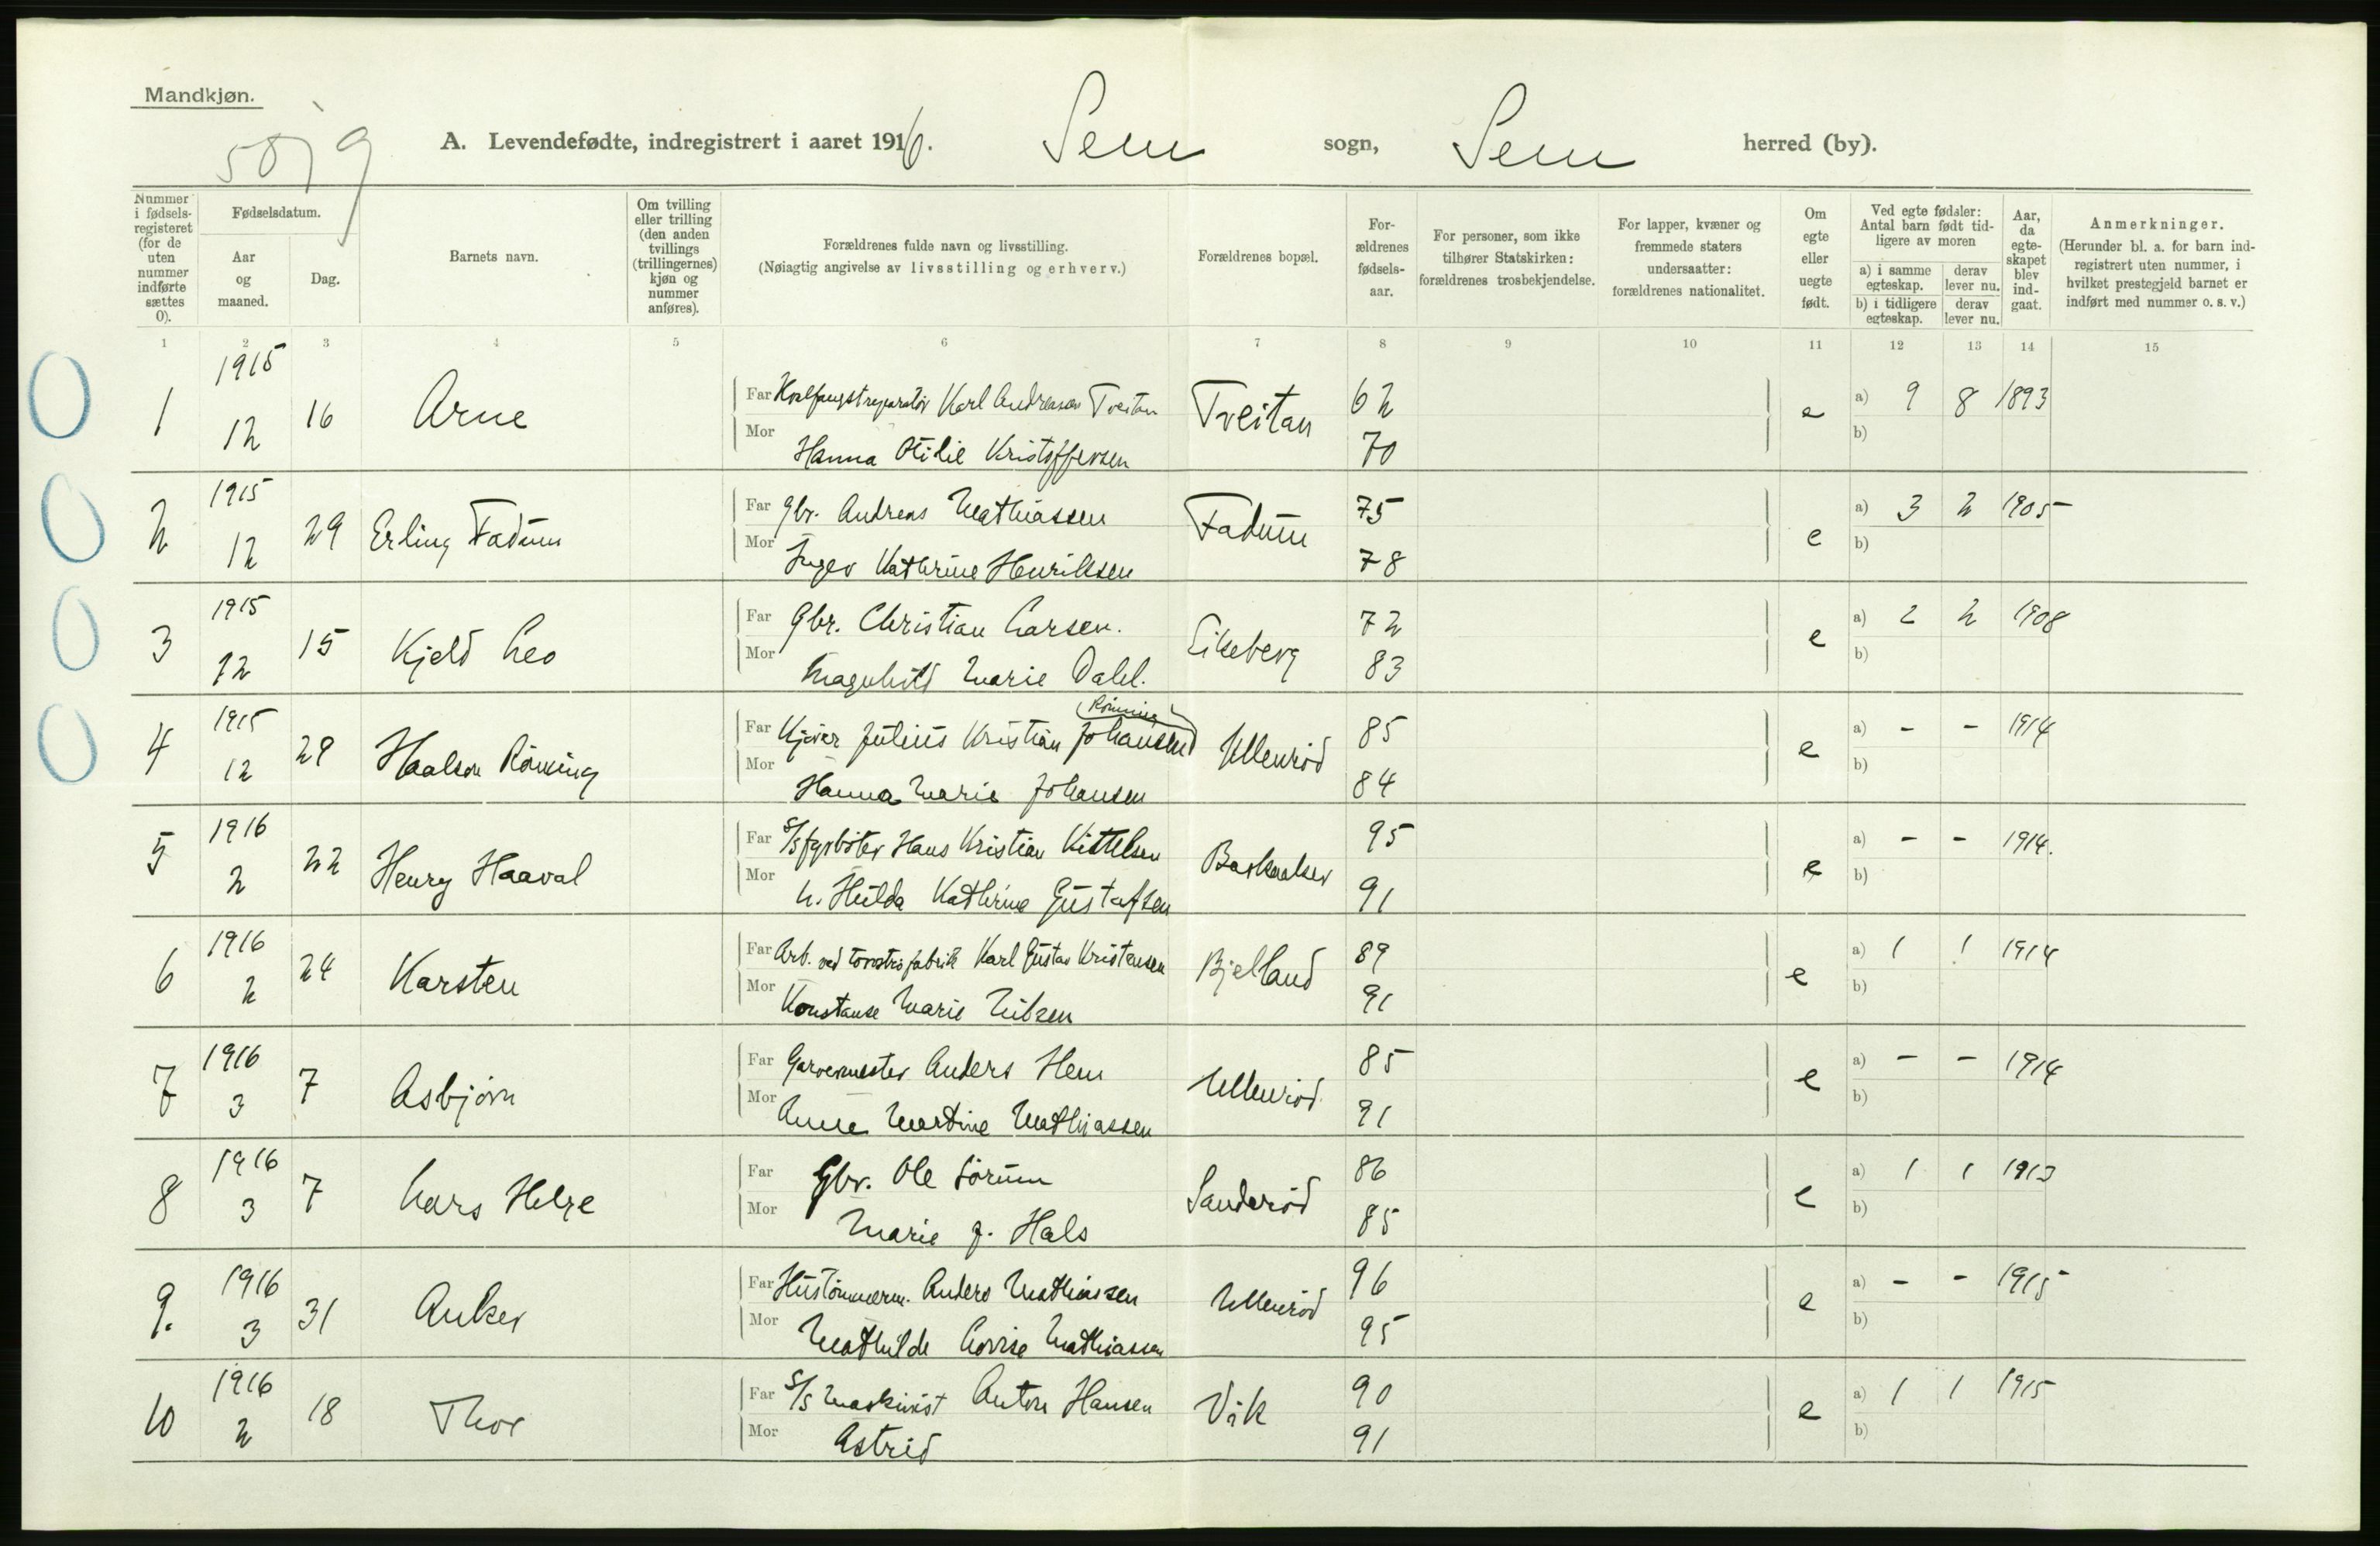 Mandkjøn.
A. Levendefødte, indregistrert i aaret 1916. Sem sogn, Sem herred (by).
5019
Nummer i fødselsregisteret (for de uten nummer indførte sættes 0).
Fødselsdatum.
Aar og maaned.
Dag.
Barnets navn.
Om tvilling eller trilling (den anden tvillings (trillingernes) kjøn og nummer anføres).
Forældrenes fulde navn og livsstilling.
(Nøiagtig angivelse av livsstilling og erhverv.)
Forældrenes bopæl.
Forældrenes fødselsaar.
For personer, som ikke tilhører Statskirken: forældrenes trosbekjendelse.
For lapper, kvæner og fremmede staters undersaatter: forældrenes nationalitet.
Om egte eller uegte født.
Ved egte fødsler: Antal barn født tidligere av moren
a) i samme egteskap. derav lever nu.
b) i tidligere egteskap. derav lever nu.
Aar, da egteskapet blev indgaat.
Anmerkninger.
(Herunder bl. a. for barn indregistrert uten nummer, i hvilket prestegjeld barnet er indført med nummer o. s. v.)
1 2 3 4 5 6 7 8 9 10 11 12 13 14 15
0 1 1915 12 16 Arne Far Karl Andreasen Tveitan Tveitan 62 e a) 9 8 1893
Mor Hanna Otilie Kristoffersen 70 b)
0 2 1915 12 29 Erling Fadum Far Gbr. Andreas Mathiassen Fadum 75 e a) 3 2 1905
Mor Inger Kathrine Henriksen 78 b)
0 3 1915 12 15 Kjeld Leo Far Gbr. Christian Larsen. Eikeberg 72 e a) 2 2 1908
Mor Magnhild Marie Dahl. 83 b)
0 4 1915 12 29 Haakon Rönning Far Kjører Julius Kristian Johansen (Rönning) Ullenröd 85 e a) - - 1914
Mor Hanna Marie Johansen 84 b)
5 1916 2 22 Henry Haaval Far S/s fyrböter Hans Kristian Kittelsen Barkaaker 95 e a) - - 1914.
Mor h. Hulda Kathrine Gustafsen 91 b)
6 1916 2 24 Karsten Far Arb. ved fabrik Karl Gustav Kristensen Bjelland 89 e a) 1 1 1914
Mor Konstanse Marie Nilsen 91 b)
7 1916 3 7 Asbjörn Far Garvermester Anders Hem Ullenröd. 85 e a) - - 1914
Mor Anna Martine Mathiassen 91 b)
8 1916 3 7 Lars Helge Far Gbr. Ole Sörum Sanderöd 86 e a) 1 1 1913
Mor Marie J. Hals 85 b)
9. 1916 3 31 Anker Far Hustömmerm. Anders Mathiassen Ullenröd 96 e a) - - 1915
Mor Mathilde Lovise Mathiassen 95 b)
10 1916 2 18 Thor Far S/s maskinist Anton Hansen Vik 90 e a) 1 1 1915
Mor Astrid 91 b)